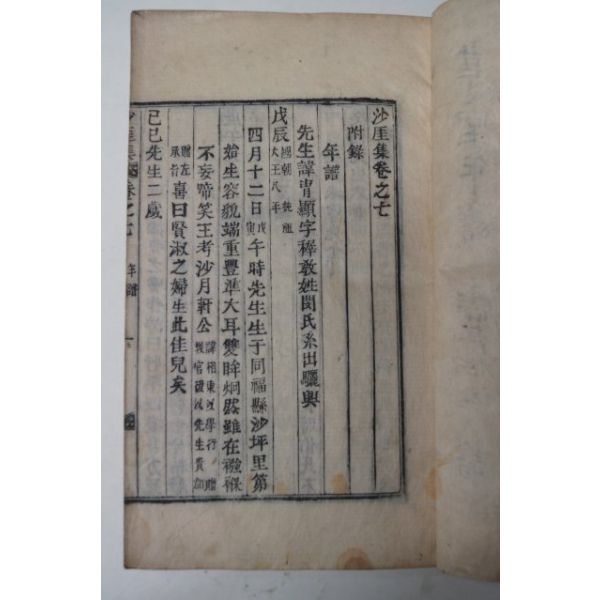 沙厓集卷之七
附錄
年譜
先生諱冑顯字稺敬姓閔氏系出驪興
戊辰 國朝純廟大王八年
四月十二日戊寅午時先生生于同福縣沙坪里第
始生容貌端重豐準大耳雙眸炯然雖在襁褓
不妄啼笑王考沙月軒公 諱相東以學行贈 先生貴加
贈左承旨喜曰賢淑之婦生此佳兒矣
己巳先生二歲
沙厓集 卷之七 年譜 一